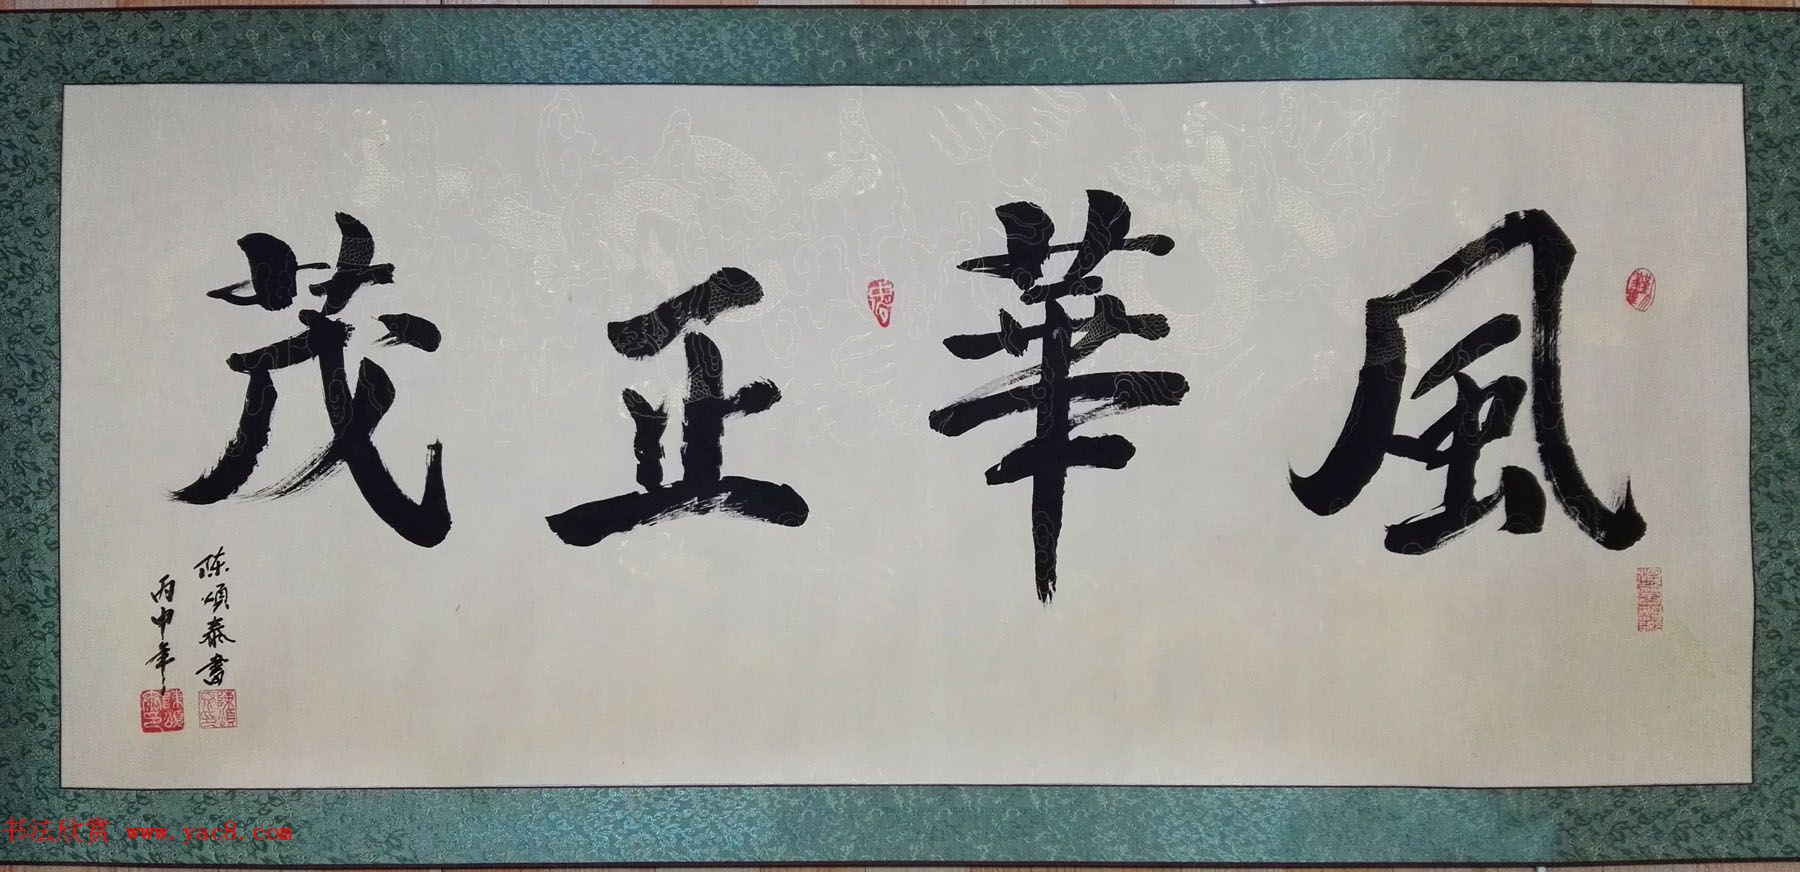 風華正茂
陈頌泰書
丙申年
陳頌
书法欣赏 www.yac8.com